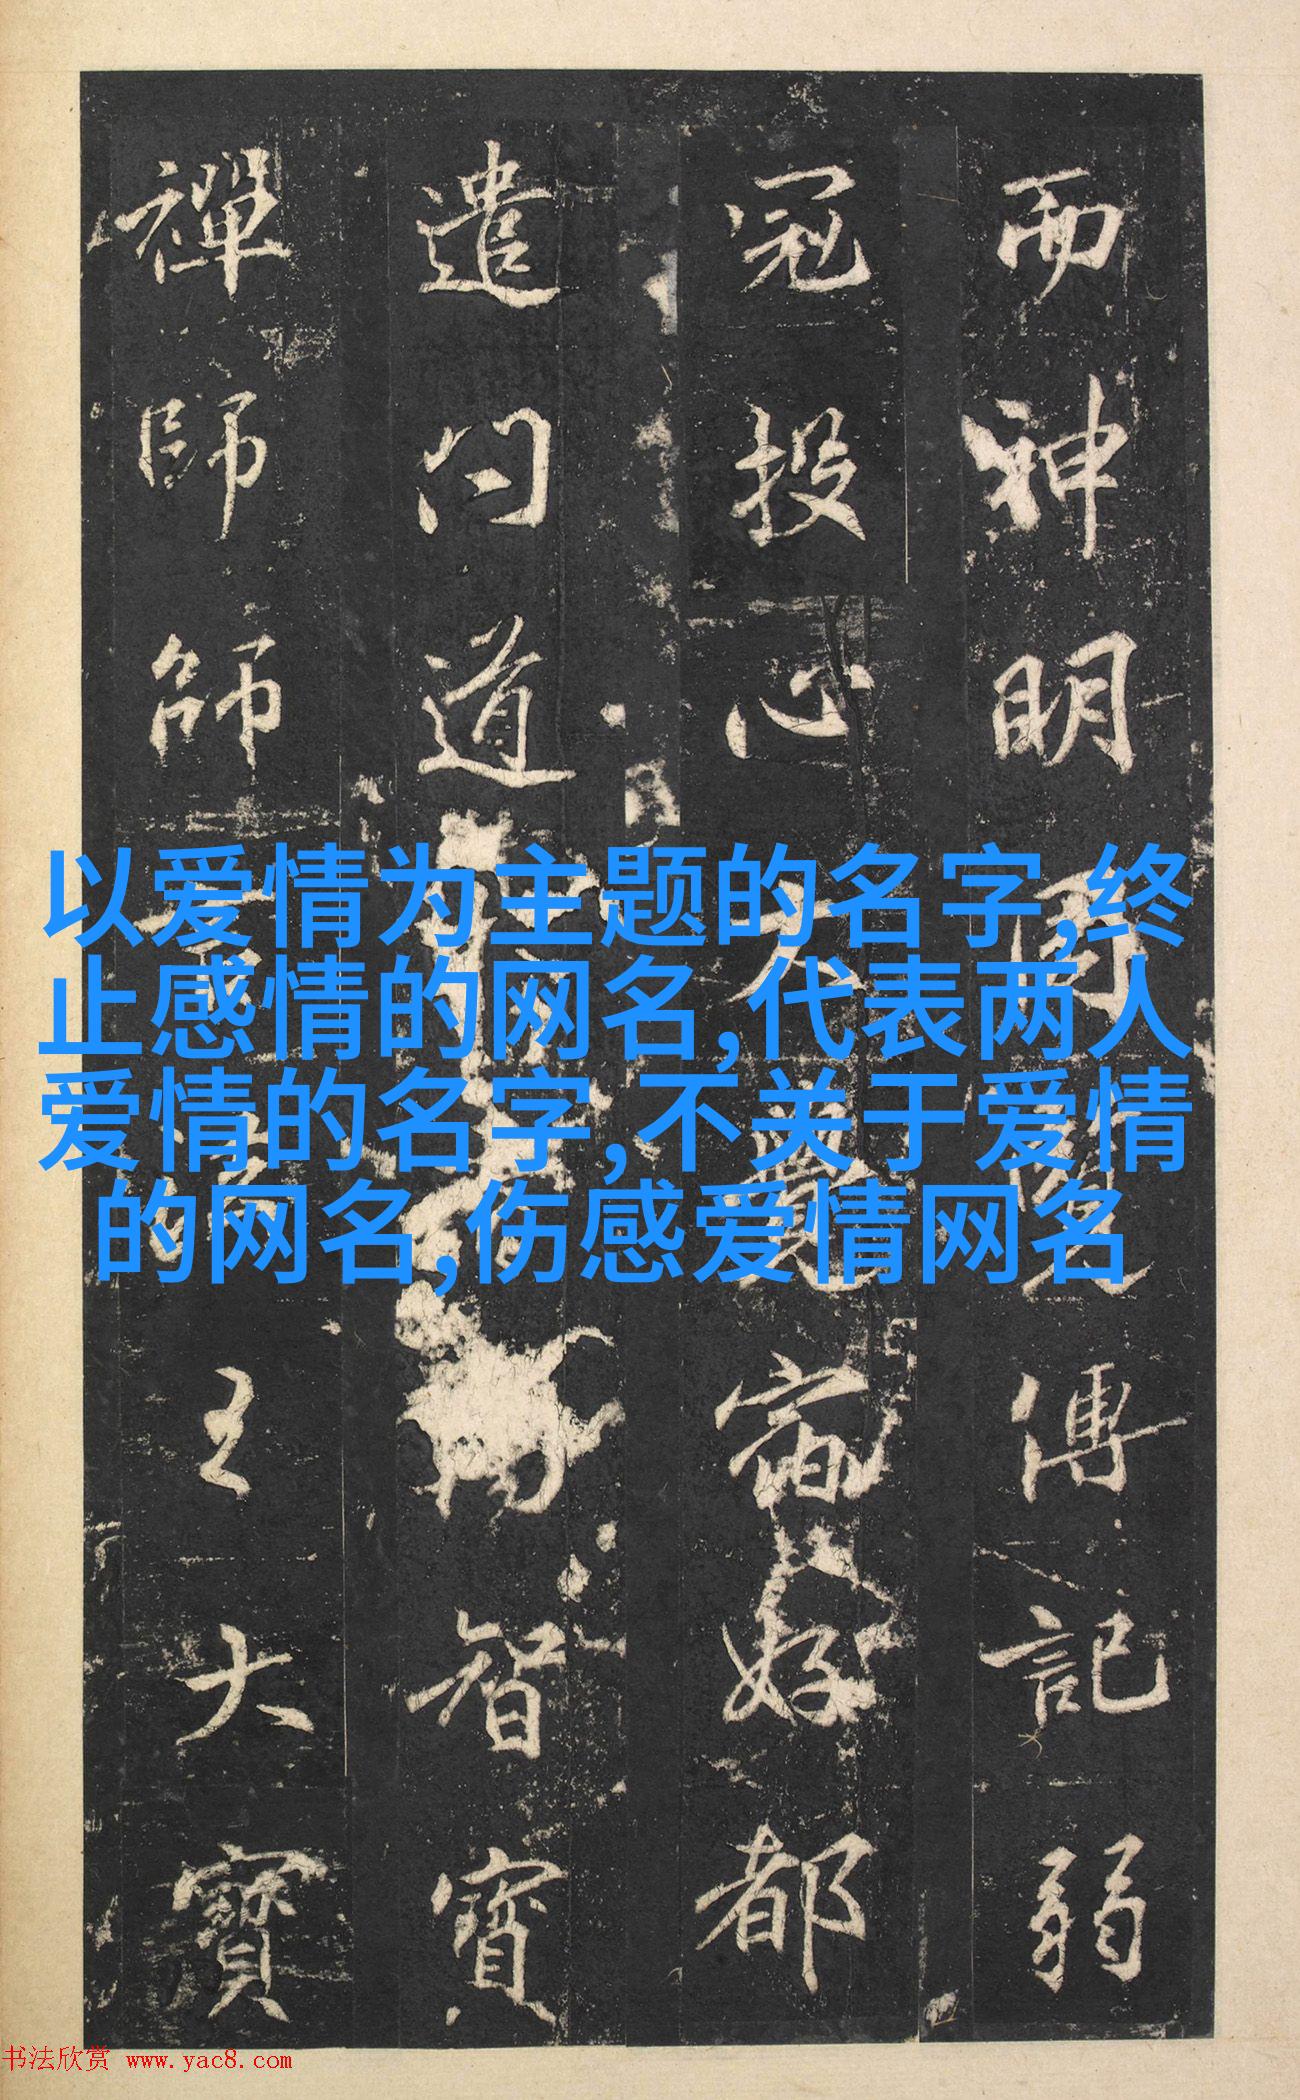 而神明内𭥍傳記弱
冠投心大覺𪧐好都
遣問道智寶
禪師師王大寶
以爱情为主题的名字,终
止感情的网名,代表两人
爱情的名字,不关于爱情
的网名,伤感爱情网名
书法欣赏 www.yac8.com